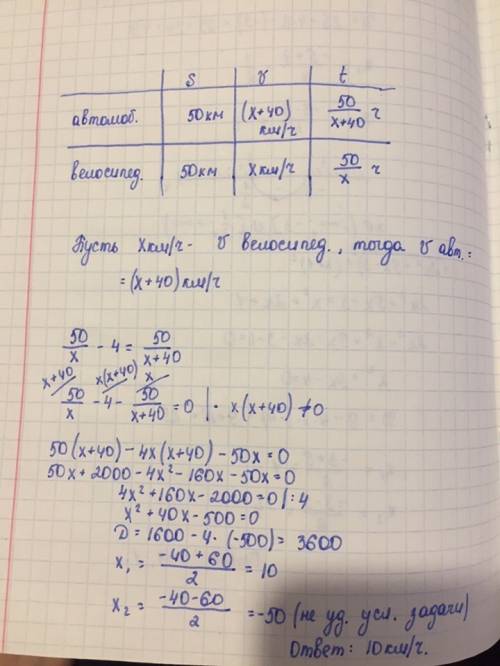 S v t
автомоб. 50 км (x+40) км/ч 50/(x+40) ч
велосипед. 50 км x км/ч 50/x ч
Пусть x км/ч - v велосипед., тогда v авт.:
= (x+40) км/ч
50/x - 4 = 50/(x+40)
x+40 x(x+40) x
50/x - 4 - 50/(x+40) = 0 | · x(x+40) ≠ 0
50(x+40) - 4x(x+40) - 50x = 0
50x + 2000 - 4x² - 160x - 50x = 0
4x² + 160x - 2000 = 0 | : 4
x² + 40x - 500 = 0
D = 1600 - 4 · (-500) = 3600
x₁ = (-40 + 60)/2 = 10
x₂ = (-40 - 60)/2 = -50 (не уд. усл. задачи)
Ответ: 10 км/ч.